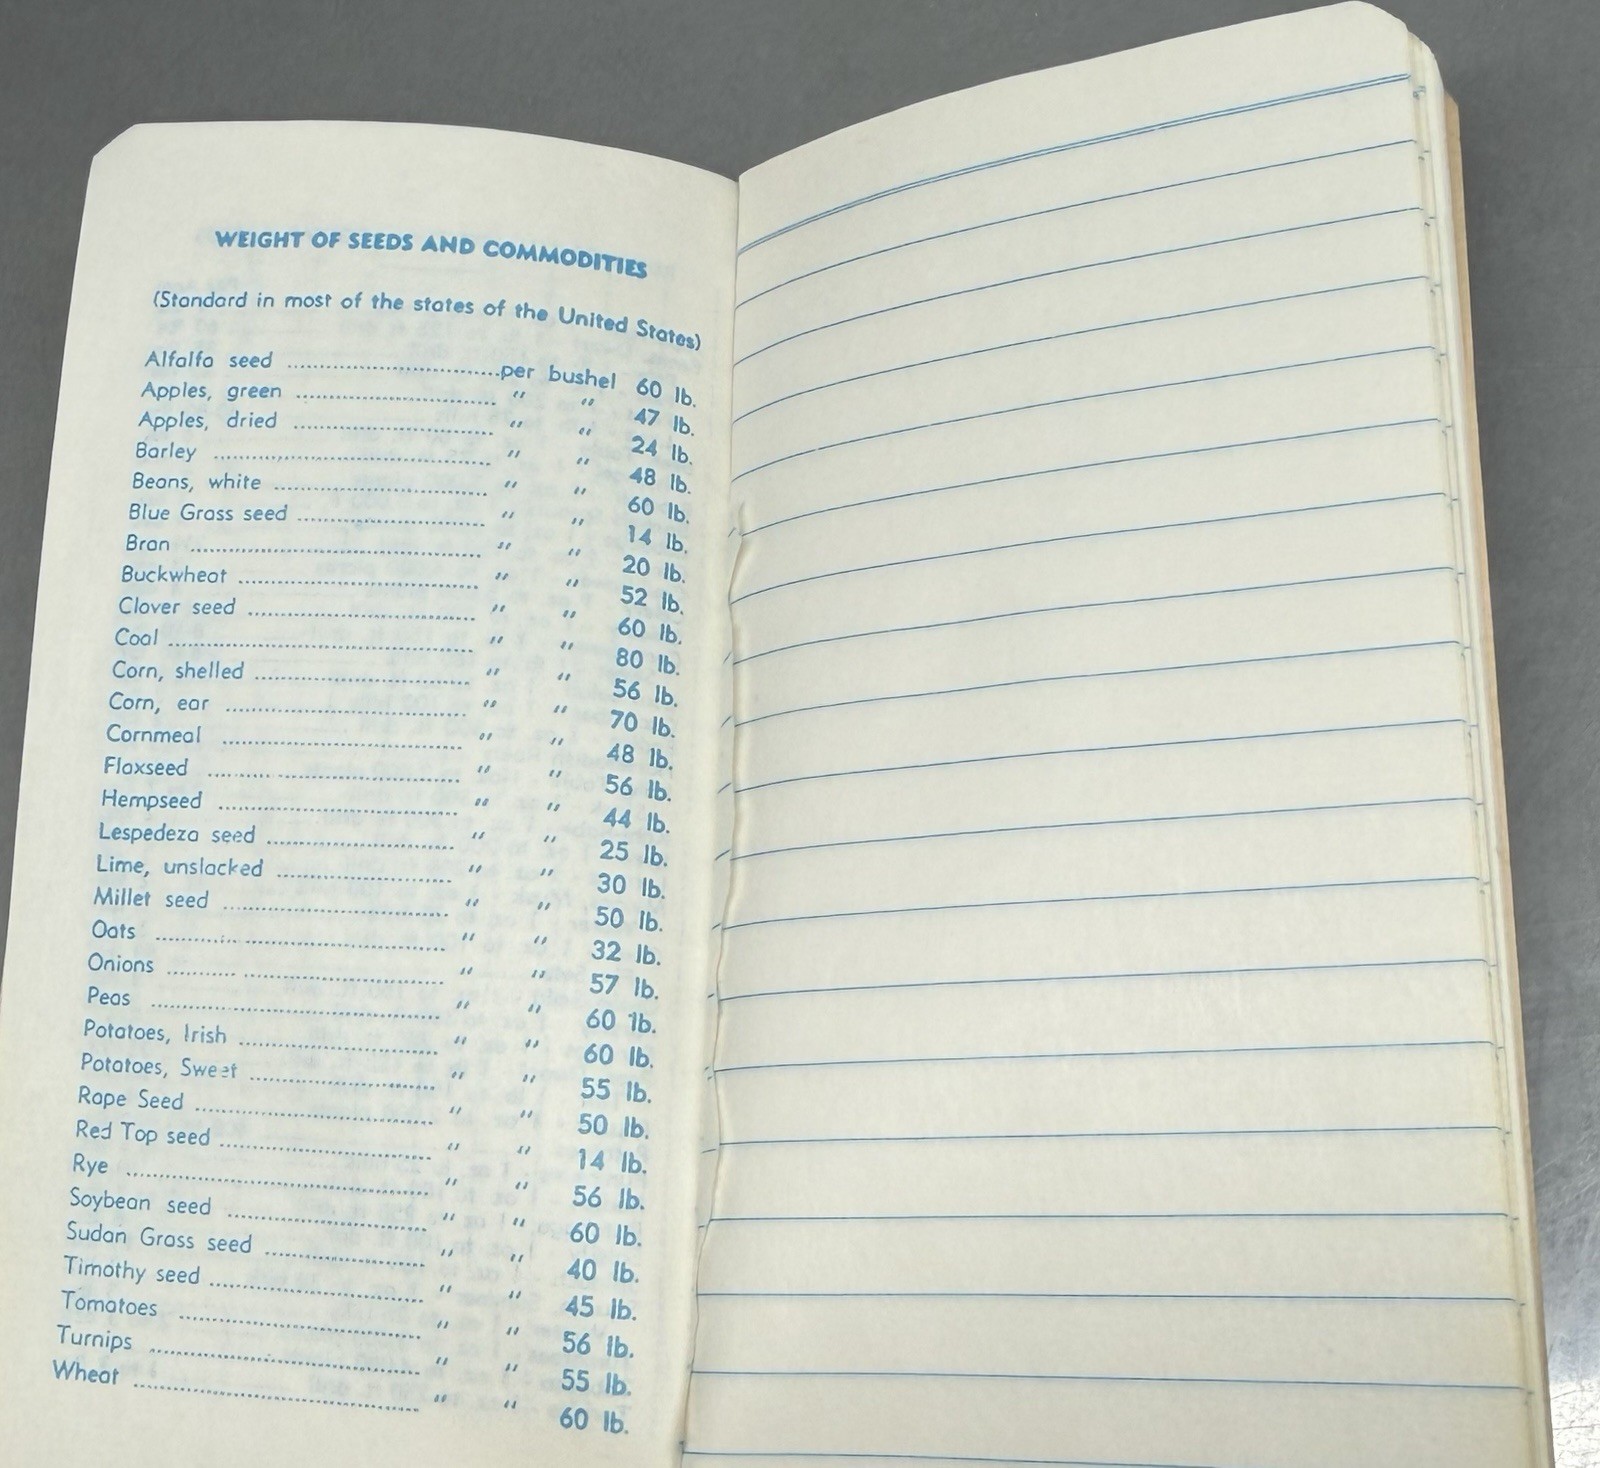 WEIGHT OF SEEDS AND COMMODITIES
(Standard in most of the states of the United States)
Alfalfa seed ........................................per bushel 60 lb.
Apples, green ...................................... " " 47 lb.
Apples, dried ...................................... " " 24 lb.
Barley .................................................... " " 48 lb.
Beans, white ........................................ " " 60 lb.
Blue Grass seed ................................... " " 14 lb.
Bran ...................................................... " " 20 lb.
Buckwheat ............................................ " " 52 lb.
Clover seed .......................................... " " 60 lb.
Coal ........................................................ " " 80 lb.
Corn, shelled ........................................ " " 56 lb.
Corn, ear .............................................. " " 70 lb.
Cornmeal .............................................. " " 48 lb.
Flaxseed ................................................ " " 56 lb.
Hempseed .............................................. " " 44 lb.
Lespedeza seed .................................... " " 25 lb.
Lime, unslacked .................................. " " 30 lb.
Millet seed .......................................... " " 50 lb.
Oats ...................................................... " " 32 lb.
Onions .................................................. " " 57 lb.
Peas ...................................................... " " 60 lb.
Potatoes, Irish ...................................... " " 60 lb.
Potatoes, Sweet .................................... " " 55 lb.
Rape Seed ............................................ " " 50 lb.
Red Top seed ........................................ " " 14 lb.
Rye ........................................................ " " 56 lb.
Soybean seed ...................................... " " 60 lb.
Sudan Grass seed .............................. " " 40 lb.
Timothy seed ........................................ " " 45 lb.
Tomatoes .............................................. " " 56 lb.
Turnips .................................................. " " 55 lb.
Wheat .................................................... " " 60 lb.